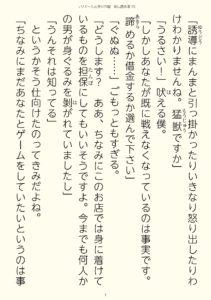 『誘導にまんまと引っ掛かったりいきなり怒り出したりわ
けわかりませんね。猛獣ですか」
「うるさい！」吠える僕。
「しかしあなたが既に戦えなくなっているのは事実です。
諦めるか借金するか選んで下さい」
「ぐぬぬ……」ごもっともすぎる。
「どうします？　ああ、ちなみにこのお店では身に着けて
いるものを担保にしてもいいそうですよ。今までも何人か
の男が身ぐるみを剝がれていましたし」
「うんそれは知ってる」
　というかそう仕向けたのってきみだよね。
「ちなみにまだあなたとゲームをしていたいというのは事